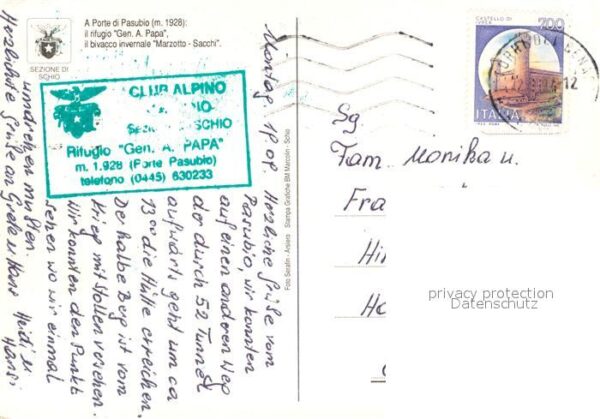 A Porte di Pasubio (m. 1928):
il rifugio "Gen. A. Papa",
il bivacco invernale "Marzotto - Sacchi".
SEZIONE DI
SCHIO
CLUB ALPINO
SCHIO
Rifugio "Gen. A. PAPA"
m. 1.928 (Porte Pasubio)
telefono (0445) 630233
Foto Serafin - Arsiero Stampa Grafiche BM Marcolin - Schio
CASTELLO DI
700
ITALIA
12
Montag, 19.09. Herzliche Grüße vom
Pasubio, wir konnten
auf einen anderen Weg
der durch 52 Tunnel
aufwärts geht um ca
13°° die Hütte erreichen.
Der halbe Berg ist vom
Krieg mit Stollen versehen.
Wir konnten den Punkt
sehen wo wir einmal
umdrehen mußten.
Herzlichste Grüße an Gretl u Hans Heidi u
Hansi
Sg.
Fam. Monika u.
Fra
Hi
Ha
privacy protection
Datenschutz